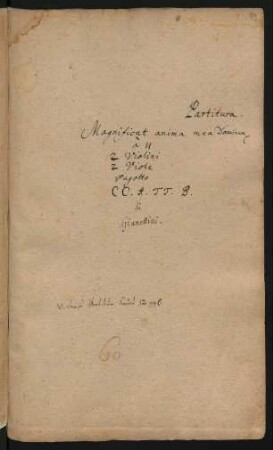 Partitura.
Magnificat anima mea Dominum
a 11
2 Violini
2 Viole
Fagotto
CC. A. TT. B.
di
Gianettini.
60